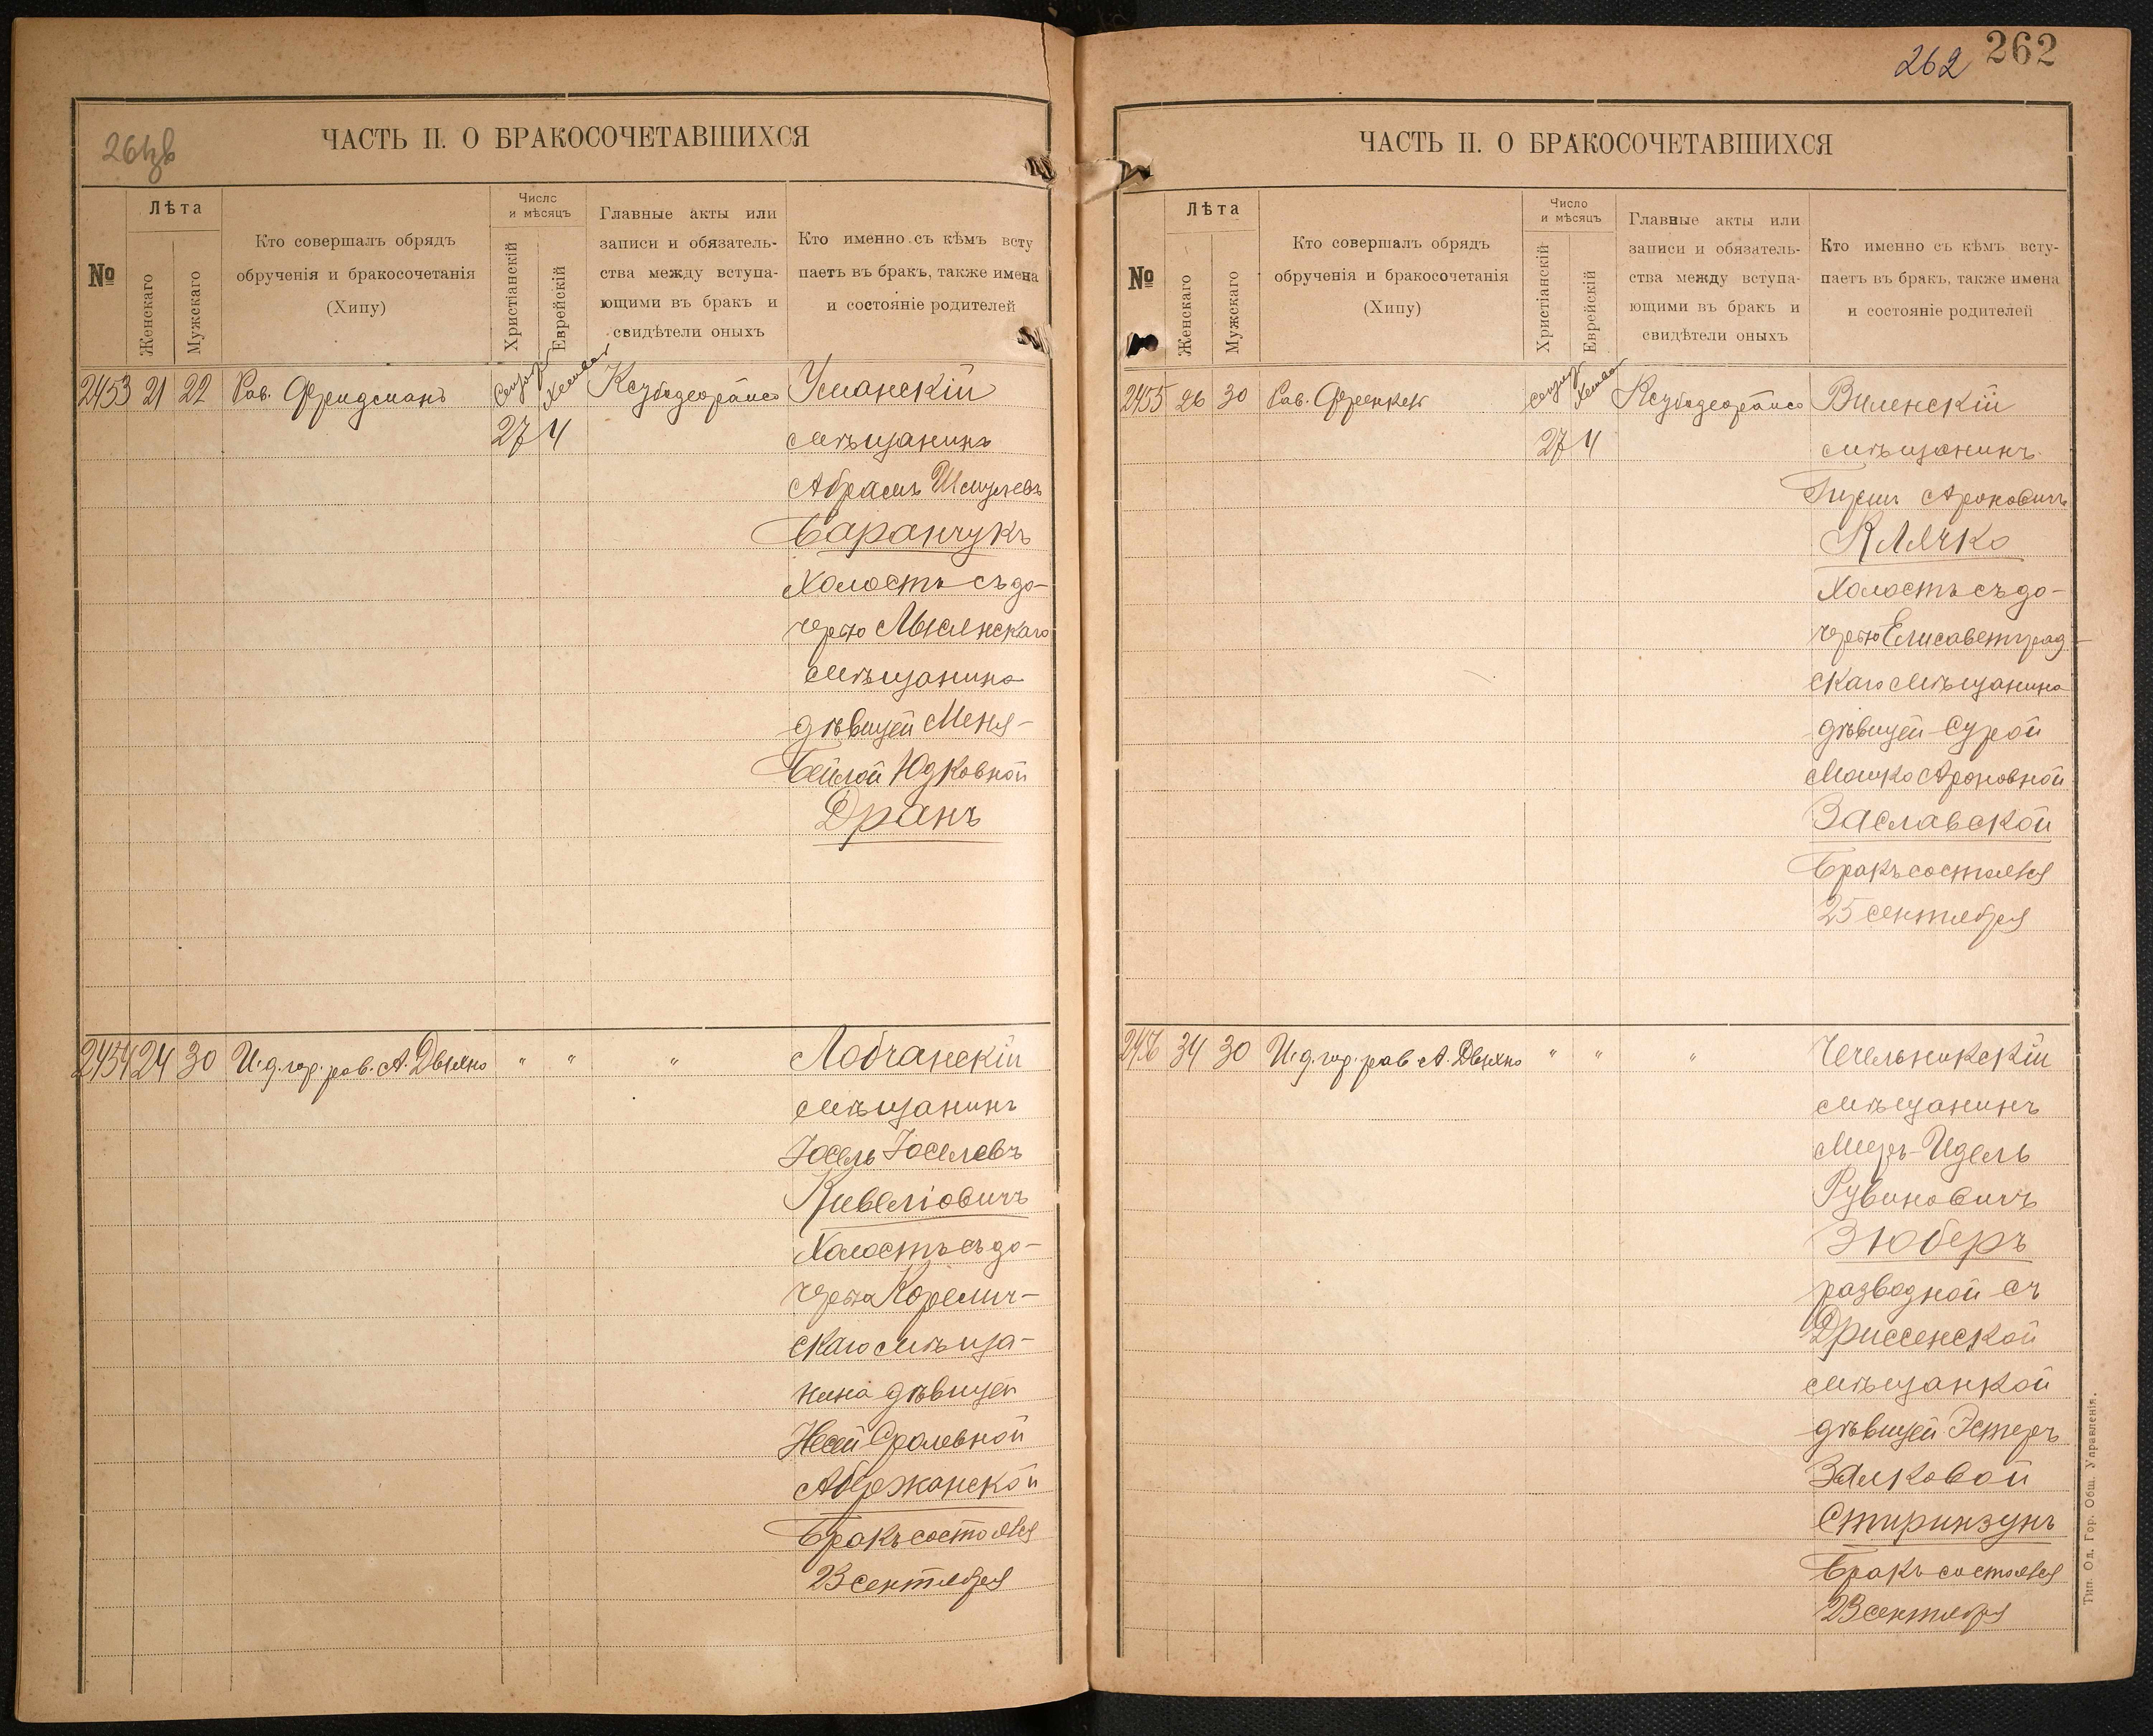 262 262
ЧАСТЬ II. О БРАКОСОЧЕТАВШИХСЯ
№
Лѣта
Женскаго
Мужескаго
Кто совершалъ обрядъ
обрученія и бракосочетанія
(Хипу)
Число
и мѣсяцъ
Христіанскій
Еврейскій
Главные акты или
записи и обязатель-
ства между вступа-
ющими въ бракъ и
свидѣтели оныхъ
Кто именно съ кѣмъ всту
паетъ въ бракъ, также имена
и состояніе родителей
2453 21 22 Рав. Фридманъ
27 4
Уманскій
мѣщанинъ
Абрамъ Шмулевъ
Баранчукъ
Холостъ съ до-
черью
мѣщанина
дѣвицей Меня-
Бейлой Юдковной
Дранъ
2454 24 30 И. д. гор. рав. А. Дыхно " " "
Лобчанскій
мѣщанинъ
Іосель Іоселевъ
Кивеліовичъ
Холостъ съ до-
черью Корелич-
скаго мѣща-
нина дѣвицей
Сролевной
Абержанской
Бракъ состоялся
23 сентября
ЧАСТЬ II. О БРАКОСОЧЕТАВШИХСЯ
№
Лѣта
Женскаго
Мужескаго
Кто совершалъ обрядъ
обрученія и бракосочетанія
(Хипу)
Число
и мѣсяцъ
Христіанскій
Еврейскій
Главные акты или
записи и обязатель-
ства между вступа-
ющими въ бракъ и
свидѣтели оныхъ
Кто именно съ кѣмъ всту-
паетъ въ бракъ, также имена
и состояніе родителей
2455 26 30 Рав. Френкель
27 4
Виленскій
мѣщанинъ
Гирш Ароновичъ
Клячко
Холостъ съ до-
черью Елисаветград-
скаго мѣщанина
дѣвицей Сурой
Ароновной
Заславской
Бракъ состоялся
25 сентября
2456 34 30 И. д. гор. рав. А. Дыхно " " "
Чечельникскій
мѣщанинъ
Мееръ-Идель
Рувиновичъ
Зюберъ
разводной съ
Дриссенской
мѣщанкой
дѣвицей Эстеръ
Залковой
Стиринзунъ
Бракъ состоялся
23 сентября
Тип. Од. Гор. Общ. Управленія.